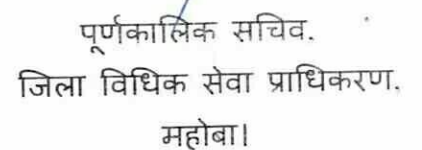 पूर्णकालिक सचिव.
जिला विधिक सेवा प्राधिकरण.
महोबा।